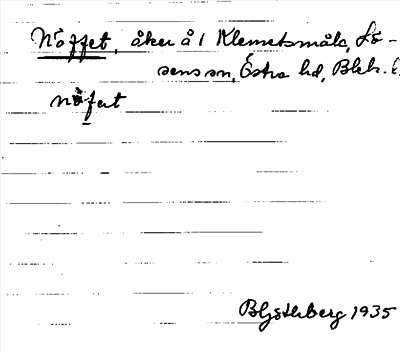 Nöffet, åker å 1 Klemetsmåla, Lö-
sens sn, Östra hd, Blek. l.
nöfət
Blژthberg 1935